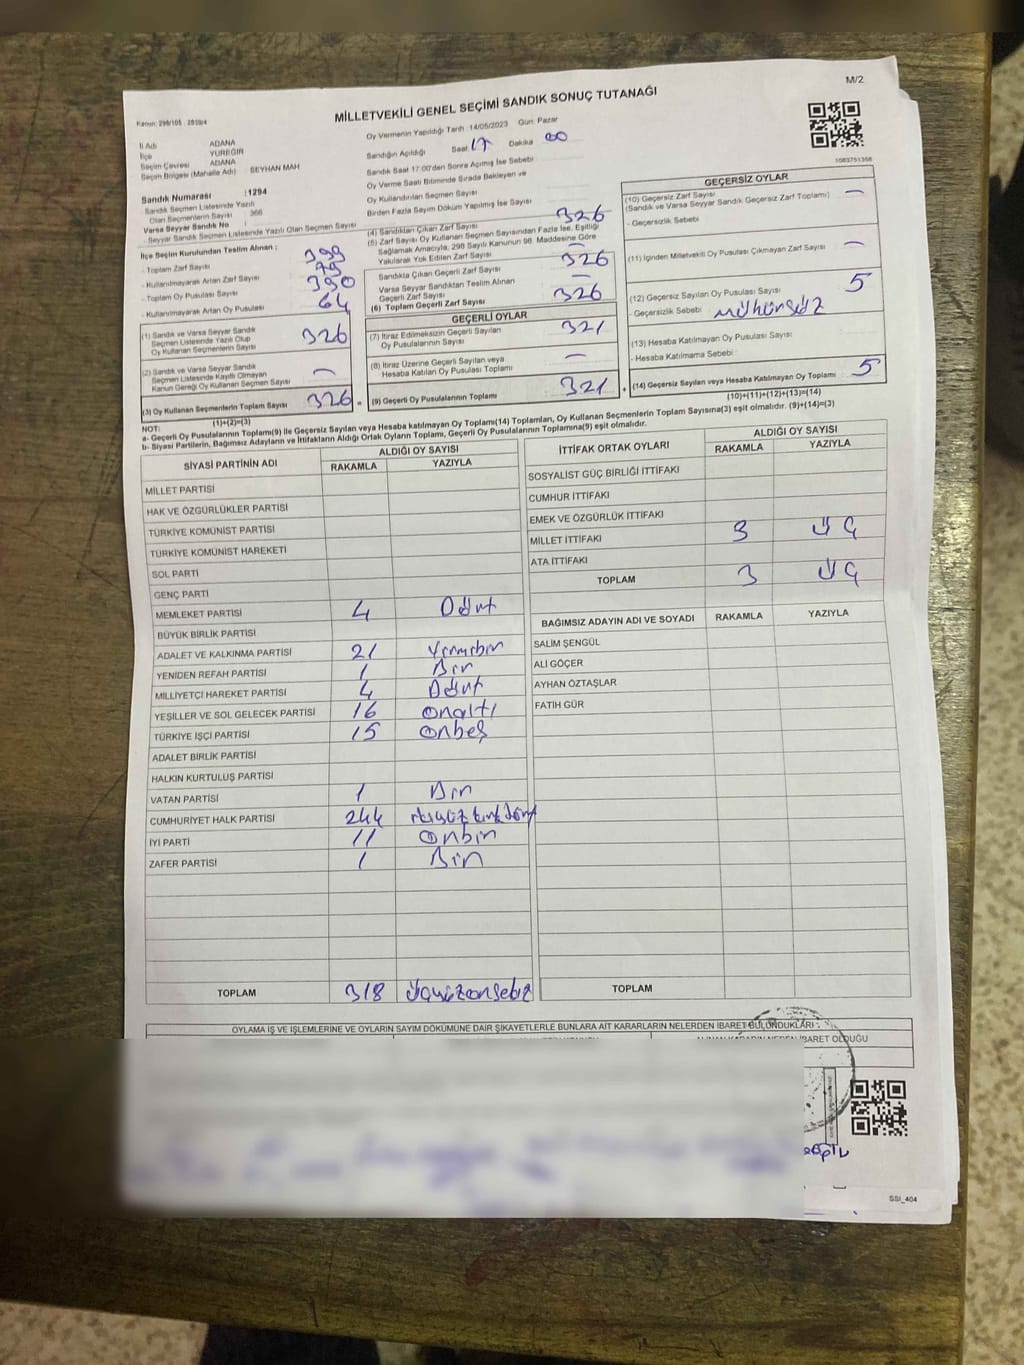 M/2
Kanun: 298/105 - 2839/4
MİLLETVEKİLİ GENEL SEÇİMİ SANDIK SONUÇ TUTANAĞI
İl Adı ADANA
İlçe YÜREĞİR
Seçim Çevresi ADANA
Seçim Bölgesi (Mahalle Adı) SEYHAN MAH
Sandık Numarası : 1294
Sandık Seçmen Listesinde Yazılı
Olan Seçmenlerin Sayısı 366
Varsa Seyyar Sandık No :
- Seyyar Sandık Seçmen Listesinde Yazılı Olan Seçmen Sayısı
Oy Vermenin Yapıldığı Tarih :14/05/2023 Gün: Pazar
Sandığın Açıldığı Saat 17 Dakika 00
Sandık Saat 17:00'den Sonra Açılmış İse Sebebi
Oy Verme Saati Bitiminde Sırada Bekleyen ve
Oy Kullandırılan Seçmen Sayısı
Birden Fazla Sayım Döküm Yapılmış İse Sayısı
1083751358
İlçe Seçim Kurulundan Teslim Alınan :
- Toplam Zarf Sayısı 399
- Kullanılmayarak Artan Zarf Sayısı
- Toplam Oy Pusulası Sayısı 390
- Kullanılmayarak Artan Oy Pusulası 64
(1) Sandık ve Varsa Seyyar Sandık
Seçmen Listesinde Yazılı Olup
Oy Kullanan Seçmenlerin Sayısı 326
(2) Sandık ve Varsa Seyyar Sandık
Seçmen Listesinde Kayıtlı Olmayan
Kanun Gereği Oy Kullanan Seçmen Sayısı —
(3) Oy Kullanan Seçmenlerin Toplam Sayısı 326
(1)+(2)=(3)
(4) Sandıktan Çıkan Zarf Sayısı 326
(5) Zarf Sayısı Oy Kullanan Seçmen Sayısından Fazla İse, Eşitliği
Sağlamak Amacıyla, 298 Sayılı Kanunun 98. Maddesine Göre
Yakılarak Yok Edilen Zarf Sayısı
Sandıkta Çıkan Geçerli Zarf Sayısı 326
Varsa Seyyar Sandıktan Teslim Alınan
Geçerli Zarf Sayısı —
(6) Toplam Geçerli Zarf Sayısı 326
GEÇERLİ OYLAR
(7) İtiraz Edilmeksizin Geçerli Sayılan
Oy Pusulalarının Sayısı 321
(8) İtiraz Üzerine Geçerli Sayılan veya
Hesaba Katılan Oy Pusulası Toplamı —
(9) Geçerli Oy Pusulalarının Toplamı 321
GEÇERSİZ OYLAR
(10) Geçersiz Zarf Sayısı
(Sandık ve Varsa Seyyar Sandık Geçersiz Zarf Toplamı) —
- Geçersizlik Sebebi
(11) İçinden Milletvekili Oy Pusulası Çıkmayan Zarf Sayısı —
(12) Geçersiz Sayılan Oy Pusulası Sayısı 5
- Geçersizlik Sebebi mühürsüz
(13) Hesaba Katılmayan Oy Pusulası Sayısı
- Hesaba Katılmama Sebebi :
(14) Geçersiz Sayılan veya Hesaba Katılmayan Oy Toplamı 5
(10)+(11)+(12)+(13)=(14)
NOT:
a- Geçerli Oy Pusulalarının Toplamı(9) ile Geçersiz Sayılan veya Hesaba katılmayan Oy Toplamı(14) Toplamları, Oy Kullanan Seçmenlerin Toplam Sayısına(3) eşit olmalıdır. (9)+(14)=(3)
b- Siyasi Partilerin, Bağımsız Adayların ve İttifakların Aldığı Ortak Oyların Toplamı, Geçerli Oy Pusulalarının Toplamına(9) eşit olmalıdır.
SİYASİ PARTİNİN ADI ALDIĞI OY SAYISI
RAKAMLA YAZIYLA
MİLLET PARTİSİ
HAK VE ÖZGÜRLÜKLER PARTİSİ
TÜRKİYE KOMÜNİST PARTİSİ
TÜRKİYE KOMÜNİST HAREKETİ
SOL PARTİ
GENÇ PARTİ
MEMLEKET PARTİSİ 4 Dört
BÜYÜK BİRLİK PARTİSİ
ADALET VE KALKINMA PARTİSİ 21 Yirmibir
YENİDEN REFAH PARTİSİ 1 Bir
MİLLİYETÇİ HAREKET PARTİSİ 4 Dört
YEŞİLLER VE SOL GELECEK PARTİSİ 16 onaltı
TÜRKİYE İŞÇİ PARTİSİ 15 onbeş
ADALET BİRLİK PARTİSİ
HALKIN KURTULUŞ PARTİSİ
VATAN PARTİSİ 1 Bir
CUMHURİYET HALK PARTİSİ 244 ikiyüzkırkdört
İYİ PARTİ 11 onbir
ZAFER PARTİSİ 1 Bir
TOPLAM 318 üçyüzonsekiz
İTTİFAK ORTAK OYLARI ALDIĞI OY SAYISI
RAKAMLA YAZIYLA
SOSYALİST GÜÇ BİRLİĞİ İTTİFAKI
CUMHUR İTTİFAKI
EMEK VE ÖZGÜRLÜK İTTİFAKI
MİLLET İTTİFAKI 3 üç
ATA İTTİFAKI
TOPLAM 3 üç
BAĞIMSIZ ADAYIN ADI VE SOYADI RAKAMLA YAZIYLA
SALİM ŞENGÜL
ALİ GÖÇER
AYHAN ÖZTAŞLAR
FATİH GÜR
TOPLAM
OYLAMA İŞ VE İŞLEMLERİNE VE OYLARIN SAYIM DÖKÜMÜNE DAİR ŞİKAYETLERLE BUNLARA AİT KARARLARIN NELERDEN İBARET BULUNDUKLARI :
İBARET OLDUĞU
SSI_404